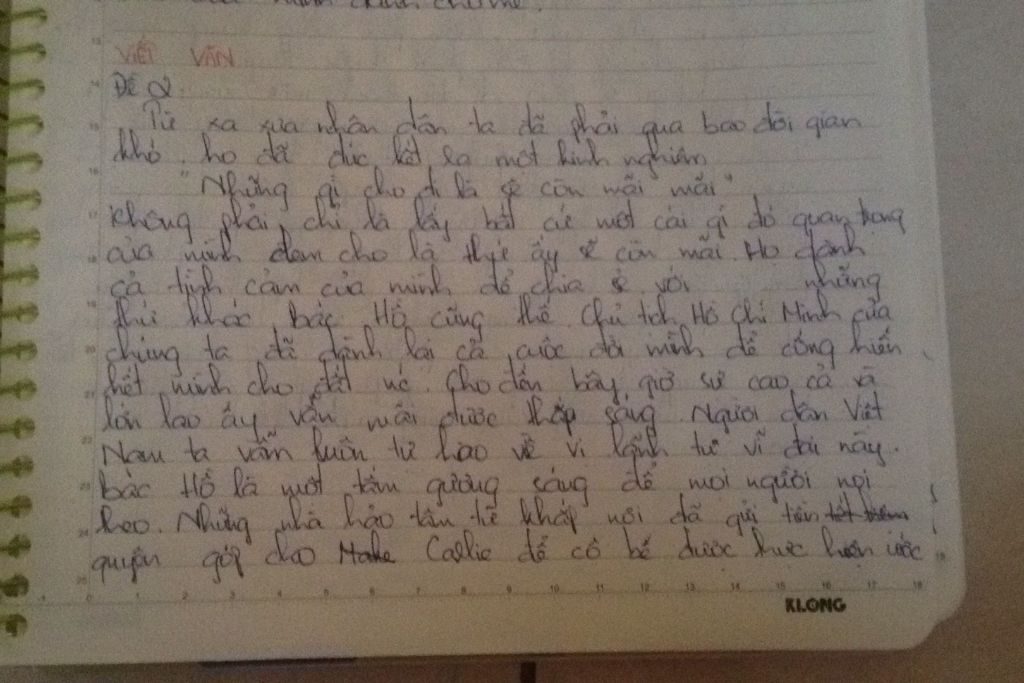 VIẾT VĂN
Đề 2
Từ xa xưa nhân dân ta đã phải qua bao đời gian
khó, họ đã đúc kết ra một kinh nghiệm
"Những gì cho đi là sẽ còn mãi mãi"
không phải chỉ là lấy bất cứ một cái gì đó quan trọng
của mình đem cho là thứ ấy sẽ còn mãi. Họ dành
cả tình cảm của mình để chia sẻ với những
thứ khác. bác Hồ cũng thế. Chủ tịch Hồ Chí Minh của
chúng ta đã dành lại cả cuộc đời mình để cống hiến
hết mình cho đất nc. Cho đến bây giờ sự cao cả và
lớn lao ấy vẫn mãi được thắp sáng. Người dân Việt
Nam ta vẫn luôn tự hào về vị lãnh tụ vĩ đại này.
bác Hồ là một tấm gương sáng để mọi người nọi
heo. Những nhà hảo tâm từ khắp nơi đã gửi tiền
quyên góp cho Callie để cô bé được thực hiện ước
KLONG